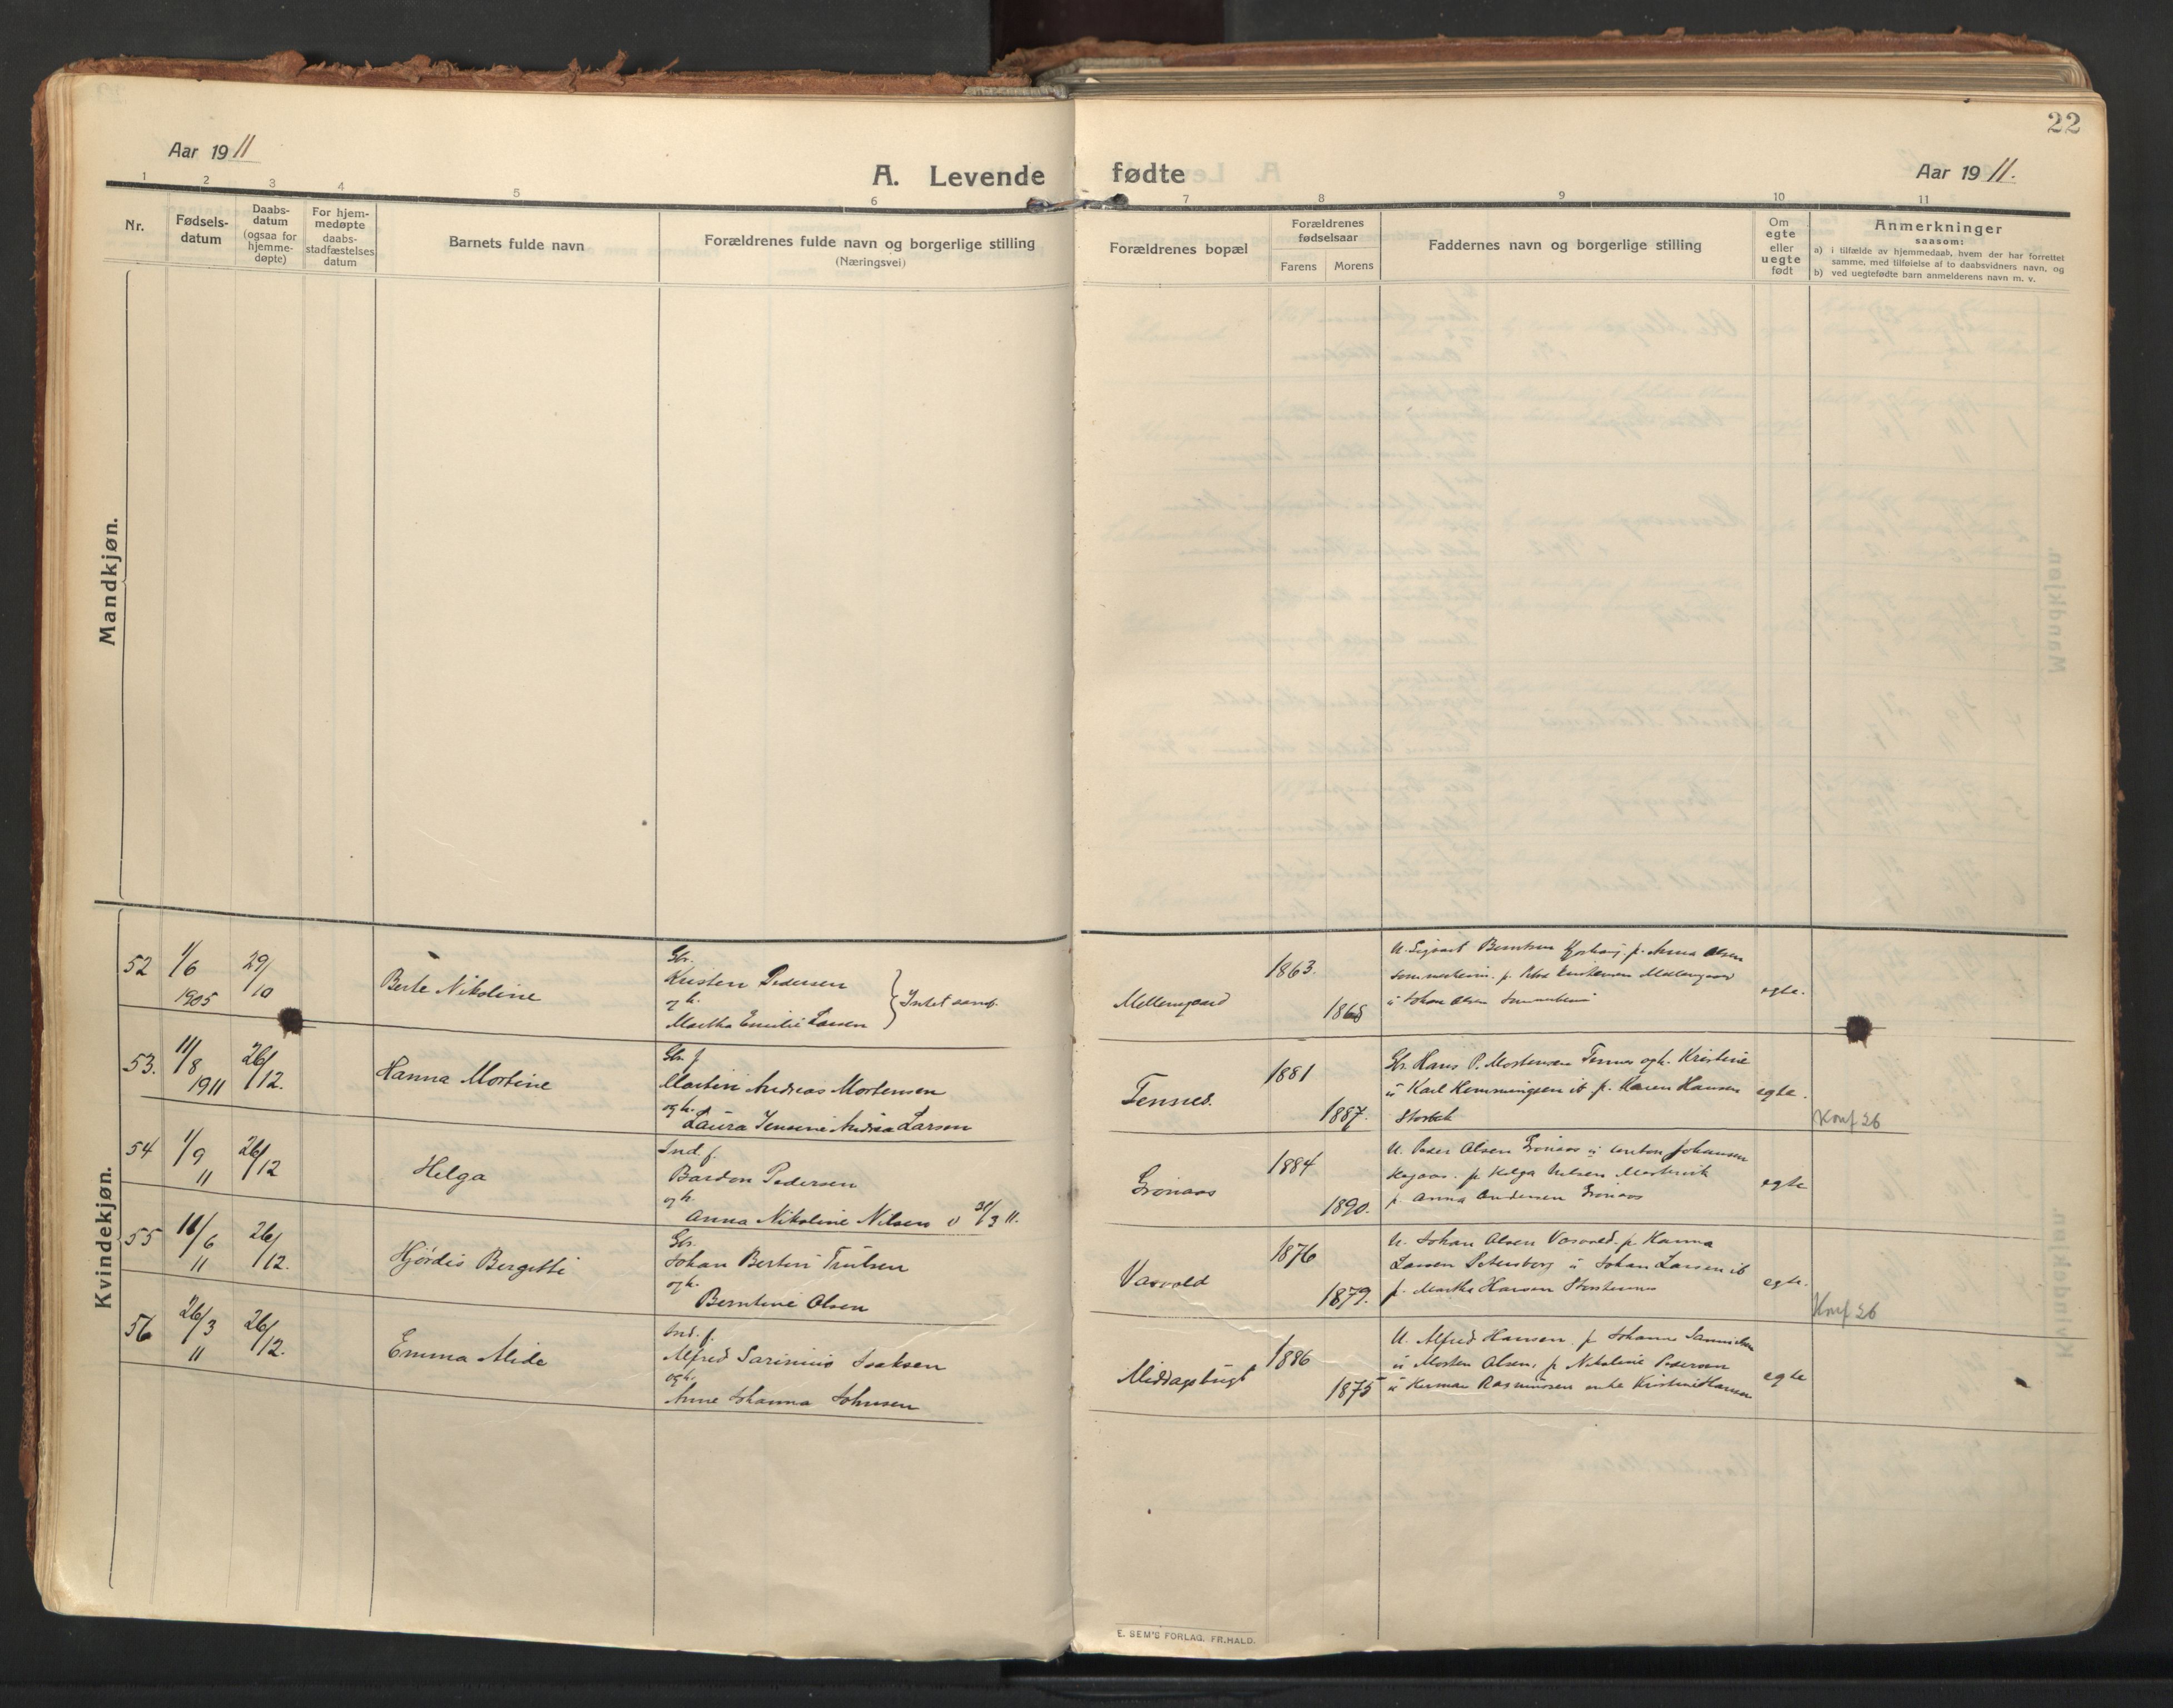 22
Aar 1911
A. Levende
fødte
Aar 1911.
1 2 3 4 5 6 7 8 9 10 11
Nr.
Fødsels-
datum
Daabs-
datum
(ogsaa for
hjemme-
døpte)
For hjem-
medøpte
daabs-
stadfæstelses
datum
Barnets fulde navn
Forældrenes fulde navn og borgerlige stilling
(Næringsvei)
Forældrenes bopæl
Forældrenes
fødselsaar
Farens Morens
Faddernes navn og borgerlige stilling
Om
egte
eller
uegte
født
Anmerkninger
saasom:
a) i tilfælde av hjemmedaab, hvem der har forrettet
samme, med tilføielse av to daabsvidners navn, og
b) ved uegtefødte barn anmelderens navn m. v.
Mandkjøn.
Kvindekjøn.
52 1/6 1905 29/10
Berte Nikoline
Gbr.
Kristen Pedersen
og h.
Martha Emilie Larsen
Intet samf.
Mellemgaard
1863.
1868
egte.
53. 11/8 1911 26/12.
Hanna Mortine
Gbr. f
Martin Andreas Mortensen
og h.
Laura Jensine Andrea Larsen
Tennes.
1881
1887.
Gbr. Hans P. Mortensen Tennes og h. Kristine
u Karl Hemmingsen ib p. Karen Hansen
egte.
Konf 26
54 1/9 11 26/12
Helga
Ind. f.
Bardon Pedersen
og h.
Anna Nikoline Nilsen v 31/3 11.
Grønaas
1884
1890.
U. Peder Olsen Grønaas u Anton Johansen
p. Helga Nilsen
p. Anna Andersen Grønaas
egte
55 16/6 11 26/12.
Hjørdis Bergitte
Gbr.
Johan Bertin Trulsen
og h.
Berntine Olsen
Vasvold
1876
1879.
U. Johan Olsen Vasvold. p. Hanna
Larsen Petersborg u Johan Larsen ib
p. Martha Hansen
egte.
Konf 26
56 26/3 11 26/12.
Emma Alide
Ind. f.
Alfred Sarinius Isaksen
og h.
Anne Johanna Johnsen
Middagsbugt
1886
1875
U. Alfred Hansen. p Johanna
u Morten Olsen, p Nikoline Pedersen
u Herman Rasmussen enke Kristine Hansen
egte
E. SEM'S FORLAG, FR.HALD.